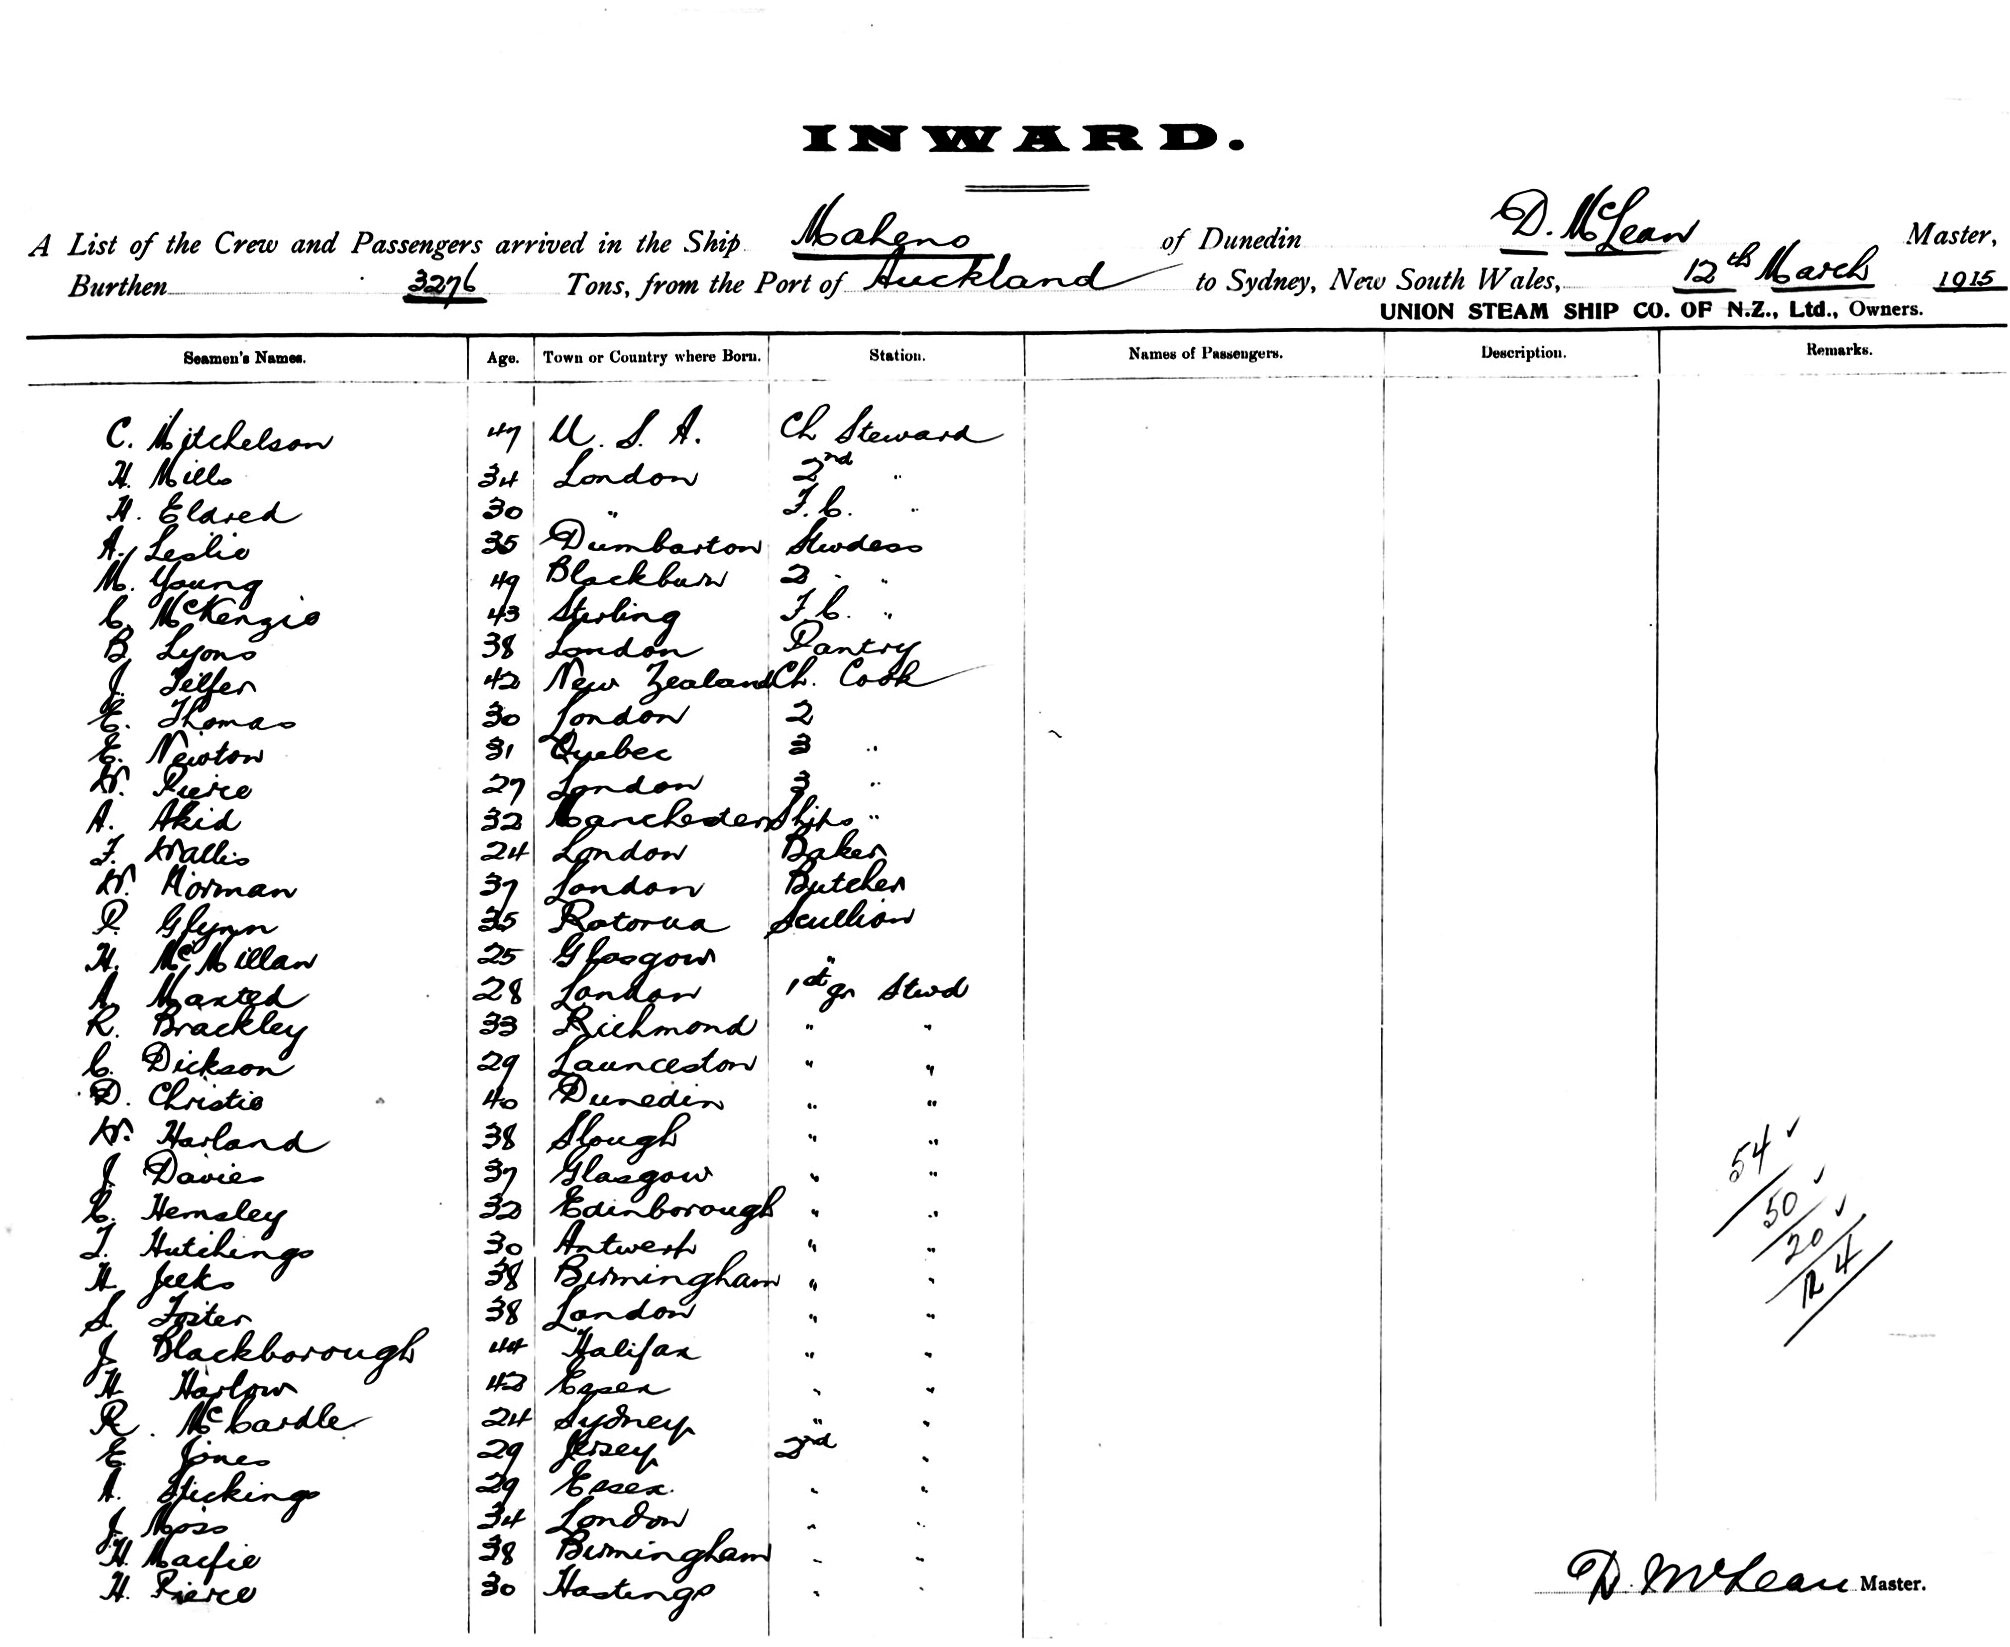 INWARD.
A List of the Crew and Passengers arrived in the Ship Maheno of Dunedin D. McLean Master,
Burthen 3276 Tons, from the Port of Auckland to Sydney, New South Wales, 12th March 1915
UNION STEAM SHIP CO. OF N.Z., Ltd., Owners.
Seamen's Names. Age. Town or Country where Born. Station. Names of Passengers. Description. Remarks.
C. Mitchelson 47 U. S. A. Ch Steward
H. Mills 34 London 2nd "
H. Eldred 30 " F. C. "
A. Leslie 35 Dumbarton Stwdess
M. Young 49 Blackburn 2 " "
C. McKenzie 43 Sterling F. C. "
B. Lyons 38 London Pantry
J. Telfer 42 New Zealand Ch. Cook
E. Thomas 30 London 2
E. Newton 31 Quebec 3 "
W. Pierce 27 London 3 "
A. Akid 32 Manchester Ships "
F. Wallis 24 London Baker
W. Norman 37 London Butcher
P. Glynn 35 Rotorua Scullion
H. McMillan 25 Glasgow "
A. Maxted 28 London 1st gr Stwd
R. Brackley 33 Richmond " "
C. Dickson 29 Launceston " "
D. Christie 40 Dunedin " "
W. Harland 38 Slough " "
J. Davies 37 Glasgow " "
C. Hemsley 32 Edinborough " "
T. Hutchings 30 Antwerp " "
H. Jeeks 38 Birmingham " "
S. Foster 38 London " "
J. Blackborough 44 Halifax " "
H Harlow 42 Essex " "
R. McCardle 24 Sydney " "
E. Jones 29 Jersey 2nd "
A. Stickings 29 Essex. " "
J. Moss 34 London " "
H. Macfie 38 Birmingham " "
H. Pierce 30 Hastings " "
54
50
20
4
D. McLean Master.